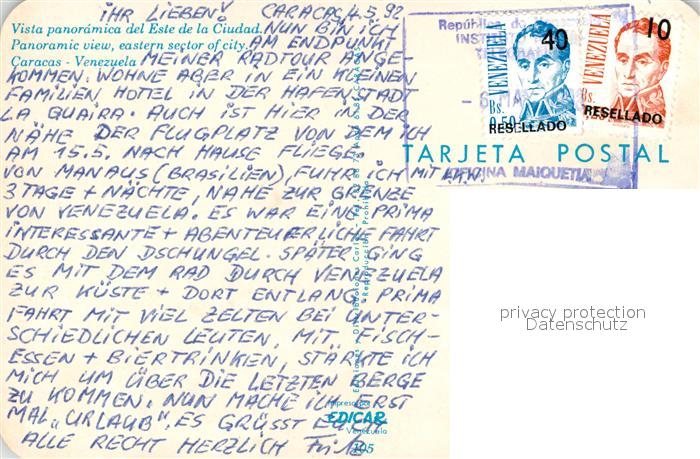 IHR LIEBEN! CARACAS, 4.5.92
Vista panorámica del Este de la Ciudad.
NUN BIN ICH
Panoramic view, eastern sector of city.
AM ENDPUNKT
Caracas - Venezuela
MEINER RADTOUR ANGE-
KOMMEN. WOHNE ABER IN EIN KLEINEN
FAMILIEN HOTEL IN DER HAFENSTADT
LA GUAIRA. AUCH IST HIER IN DER
NÄHE DER FLUGPLATZ VON DEM ICH
AM 15.5. NACH HAUSE FLIEGE.
VON MANAUS (BRASILIEN), FUHR ICH MIT LKW
3 TAGE + NÄCHTE, NAHE ZUR GRENZE
VON VENEZUELA. ES WAR EINE PRIMA
INTERESSANTE + ABENTEUERLICHE FAHRT
DURCH DEN DSCHUNGEL. SPÄTER GING
ES MIT DEM RAD DURCH VENEZUELA
ZUR KÜSTE + DORT ENTLANG. PRIMA
FAHRT MIT VIEL ZELTEN BEI UNTER-
SCHIEDLICHEN LEUTEN, MIT FISCH-
ESSEN + BIERTRINKEN, STÄRKTE ICH
MICH UM ÜBER DIE LETZTEN BERGE
ZU KOMMEN. NUN MACHE ICH ERST
MAL „URLAUB". ES GRÜSST EUCH
ALLE RECHT HERZLICH Fritz
EDICAR
Venezuela
105
República de
INST
40
VENEZUELA
Bs.
0,50
RESELLADO
10
VENEZUELA
Bs.
RESELLADO
TARJETA POSTAL
OFICINA MAIQUETIA
privacy protection
Datenschutz